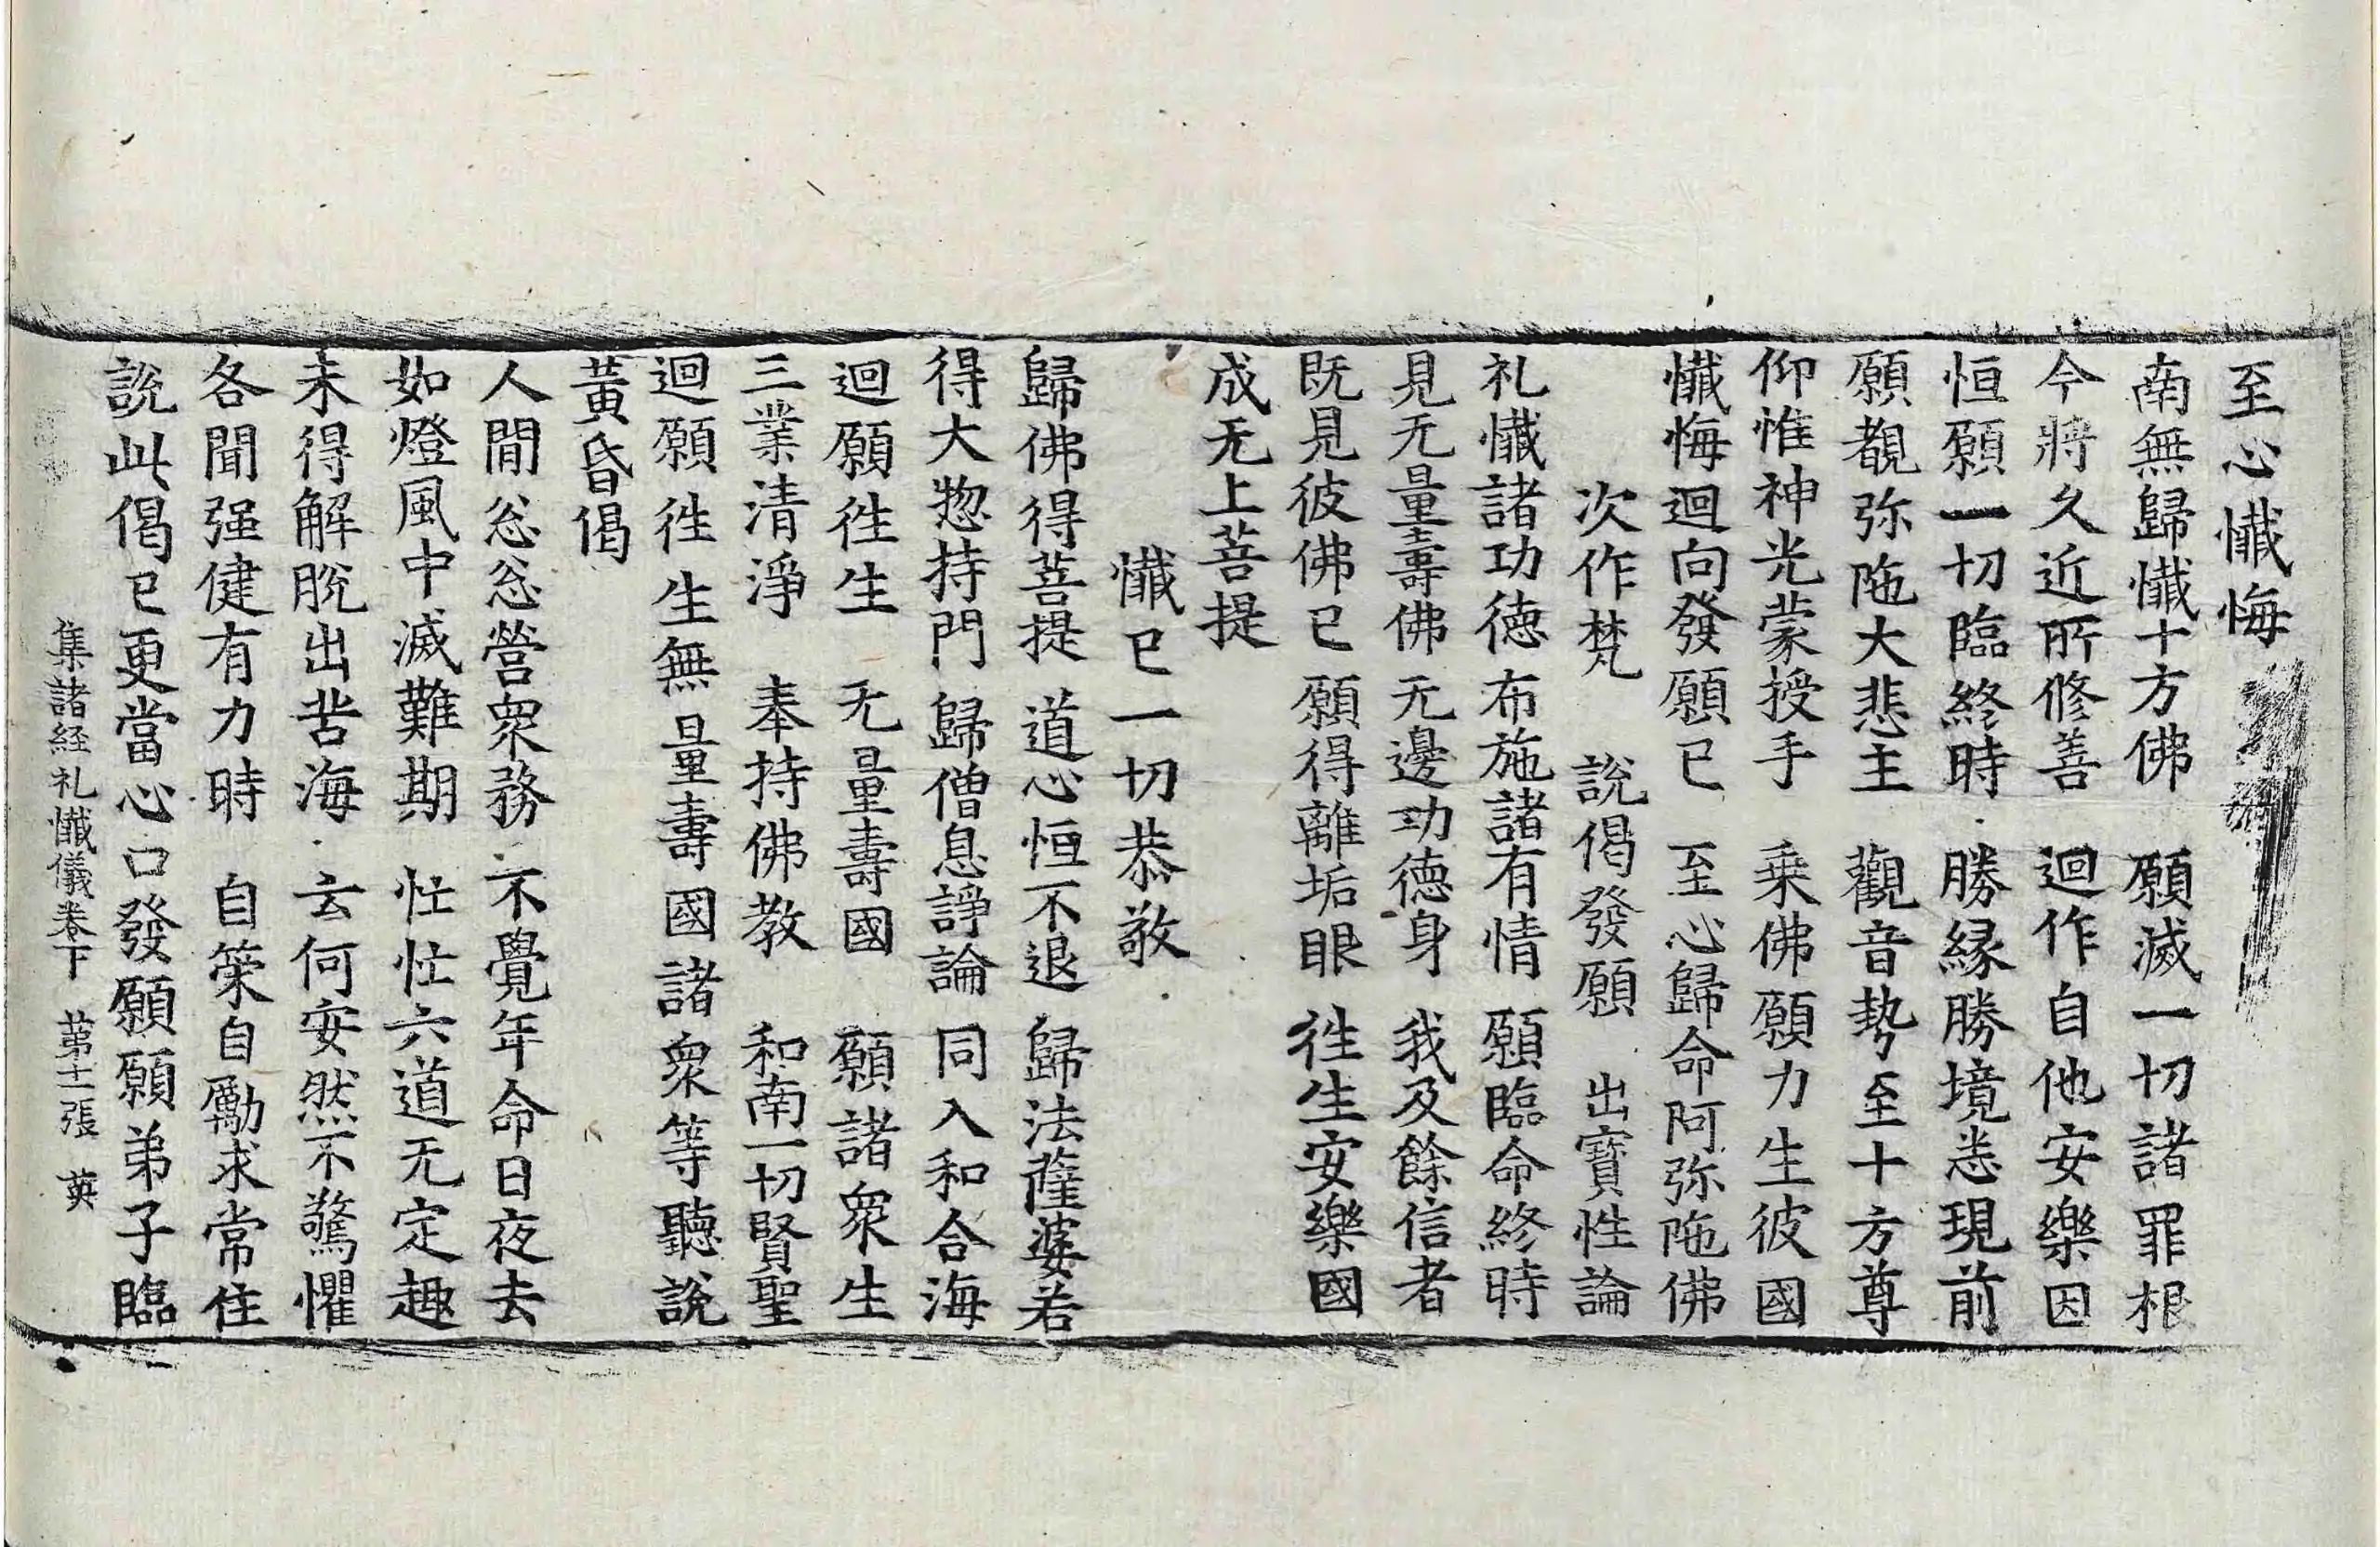 至心懺悔
南無歸懺十方佛　願滅一切諸罪根
今將久近所修善　迴作自他安樂因
恒願一切臨終時　勝縁勝境悉現前
願覩弥陁大悲主　觀音勢至十方尊
仰惟神光蒙授手　乗佛願力生彼國
懺悔迴向發願已　至心歸命阿弥陁佛
次作梵　說偈發願　出寶性論
礼懺諸功德　布施諸有情　願臨命終時
見无量壽佛　无邊功德身　我及餘信者
既見彼佛已　願得離垢眼　徃生安樂國
成无上菩提
懺已一切恭敬
歸佛得菩提　道心恒不退　歸法薩婆若
得大惣持門　歸僧息諍論　同入和合海
迴願徃生　无量壽國　願諸衆生
三業清淨　奉持佛教　和南一切賢聖
迴願徃生無量壽國諸衆等聽說
黃昏偈
人間忩忩營衆務　不覺年命日夜去
如燈風中滅難期　忙忙六道无定趣
未得解脫出苦海　云何安然不驚懼
各聞强健有力時　自策自勵求常住
說此偈已更當心口發願願弟子臨
集諸経礼懺儀卷下　第十二張　英